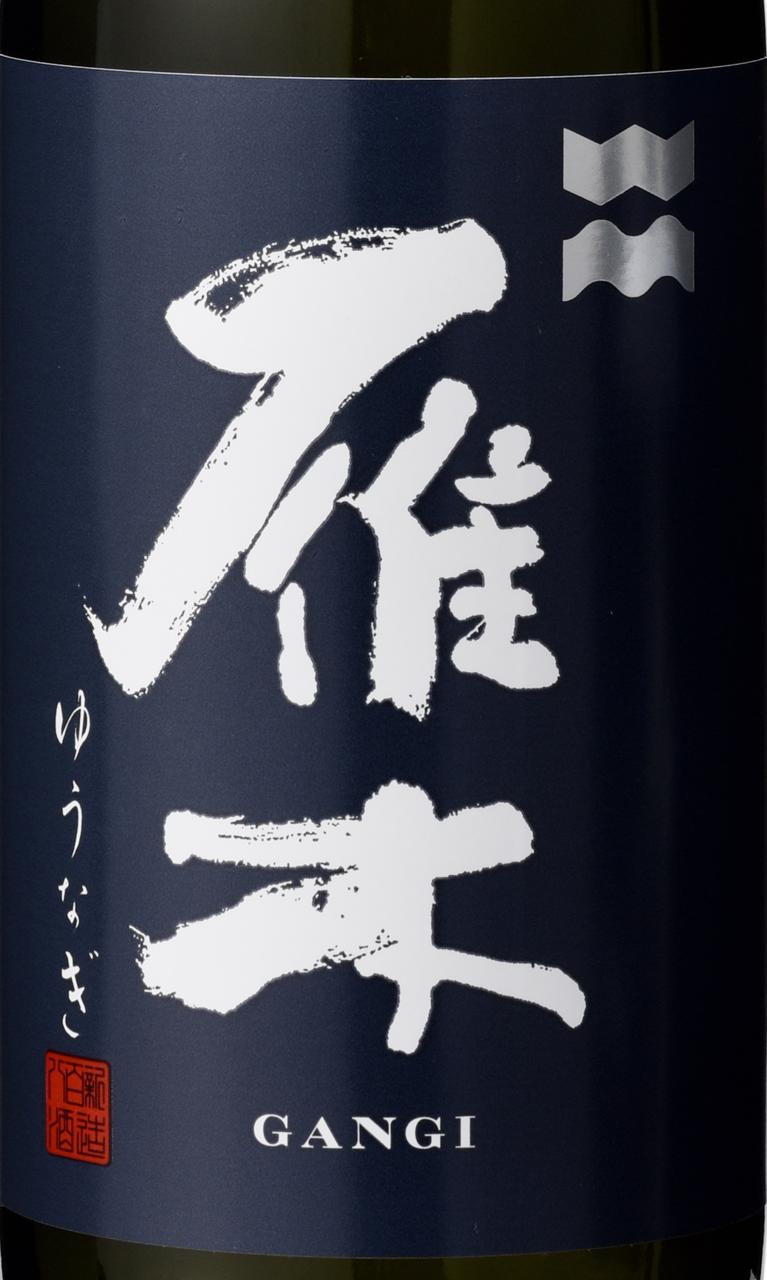 雁木
ゆうなぎ
八百新酒造
GANGI